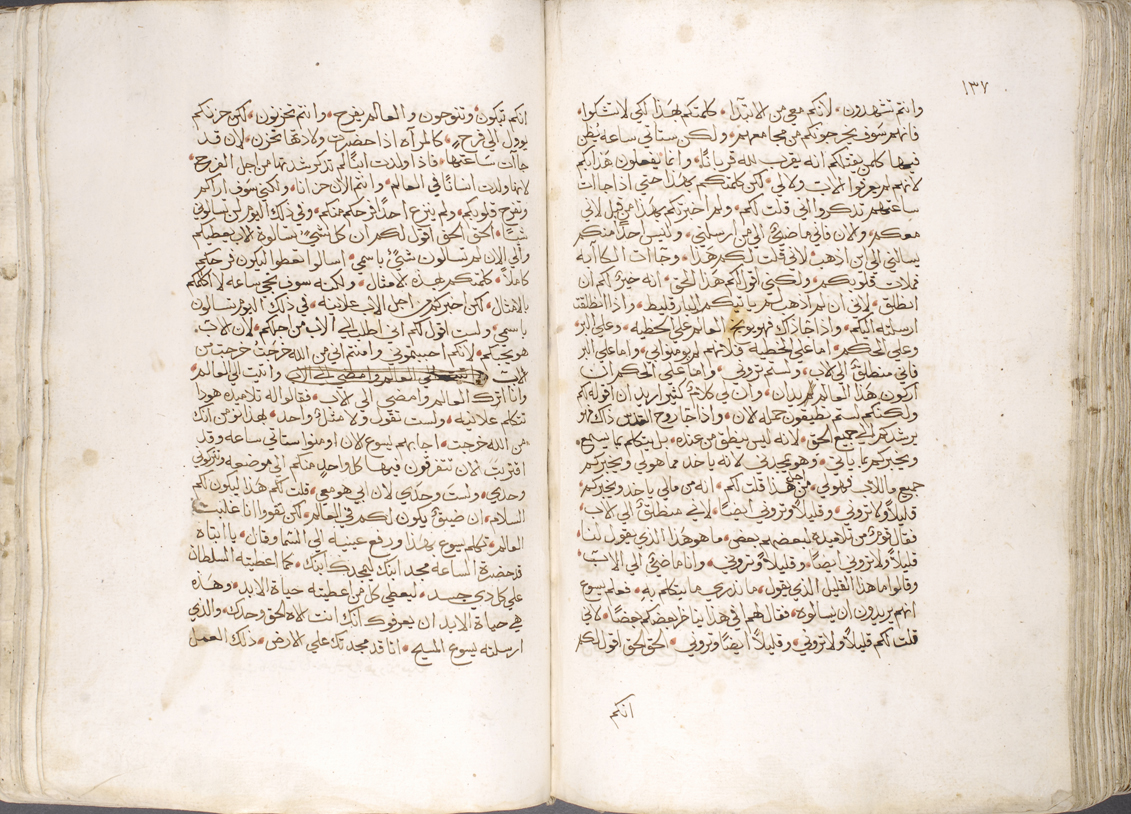 ١٣٧
وانتم تشهدون لانكم معي من الابتدا كلمتكم بهذا لكي لا تشكوا
فانهم سوف يخرجونكم من مجامعهم ولكن ستاتي ساعه يظن
فيها كلمن يقتلكم انه يقرب لله قربانًا وانما يفعلون هذا بكم
لانهم لم يعرفوا الاب ولا لي لكن كلمتكم بهذا حتي اذا جاات
ساعتهم تذكروا اني قلت لكم ولم اخبركم بهذا من قبل لاني
معكم والان فاني ماضيٌ الي من ارسلني وليس احدًا منكم
يسالني الي اين اذهب لاني قلت لكم هذا وجاات الكاابه
فملات قلوبكم ولكني اقول لكم هذا الحق انه خيرٌ لكم ان
انطلق لاني ان لم اذهب لم ياتيكم البارقليط واذا انطلقت
ارسلته اليكم واذا جا ذاك فهو يوبخ العالم علي الخطيه وعلي البر
وعلي الحكم اما علي الخطيه فلانهم لم يومنوا بي واما علي البر
فاني منطلقٌ الي الاب ولستم تروني واما علي الحكم فان
اركون هذا العالم قد دين وان لي كلامٌ كثيرٌ اريد ان اقوله لكم
ولكنكم لستم تطيقون حمله الان واذا جا روح القدس ذاك فهو
يرشدكم الي جميع الحق لانه ليس ينطق من عنده بل يتكلم بما يسمع
ويخبركم بما ياتي وهو يمجدني لانه ياخد مما هو لي ويخبركم
جميع ما للاب فهو لي من اجل هذا قلت لكم انه من مالي ياخد ويخبركم
قليلاً ولا تروني وقليلاً وتروني ايضًا لاني منطلقٌ الي الاب
فقال قومٌ من تلاميذه بعضهم لبعض ما هو هذا الذي يقول لنا
قليلاً ولا تروني ايضًا وقليلاً وتروني وانا ماضيٌ الي الاب
وقالوا ما هذا القليل الذي يقول ما ندري بما يتكلم به فعلم يسوع
انهم يريدون ان يسالوه فقال لهم في هذا يناظر بعضكم بعضًا لاني
قلت لكم قليلاً ولا تروني وقليلاً ايضًا وتروني الحق الحق اقول لكم
انكم
انكم تبكون وتنوحون والعالم يفرح وانتم تحزنون لكن حزنكم
يوول الي فرح كالمراه اذا حضرت ولادتها تحزن لان قد
جاات ساعتها فاذا ولدت ابنًا لم تذكر شدتها من اجل الفرح
لانها ولدت انسانًا في العالم وانتم الان حزانا ولكني سوف اراكم
وتفرح قلوبكم ولم ينزع احدًا فرحكم منكم وفي ذلك اليوم لن تسالوني
شيًا الحق الحق اقول لكم ان كل شيٌ تسالوه الاب يعطيكم
والي الان لم تسالون شيٌ باسمي اسالوا تعطوا ليكون فرحكم
كاملاً كلمتكم بهذه الامثال ولكنه سوف تجي ساعه لا اكلمكم
بالامثال لكن اخبركم من اجل الاب علانيه في ذلك اليوم تسالون
باسمي ولست اقول لكم اني اطلب الي الاب من اجلكم لان الاب
هو يحبكم لانكم احببتموني وامنتم اني من الله خرجت خرجت من
الاب واتيت الي العالم
وانا اترك العالم وامضي الي الاب فقالوا له تلاميذه هوذا
تتكلم علانيه ولست تقول ولا مثلٌ واحد بهذا نومن انك
من الله خرجت اجابهم يسوع الان اومنوا ستاتي ساعه وقد
اقتربت لان تتفرقون فيها كل واحدٍ منكم الي موضعه وتتركوني
وحدي ولست وحدي لان ابي هو معي قلت لكم هذا ليكون لكم
السلام ان ضيقٌ يكون لكم في العالم لكن تقووا انا غلبت
العالم تكلم يسوع بهذا ورفع عينيه الي السما وقال يا ابتاه
قد حضرت الساعه مجد ابنك ليمجدك ابنك كما اعطيته السلطان
علي كل ذي جسد ليعطي كل من اعطيته حياة الابد وهذه
هي حياة الابد ان يعرفوك انك انت الاه الحق وحدك والذي
ارسلته يسوع المسيح انا قد مجدتك علي الارض ذلك العمل